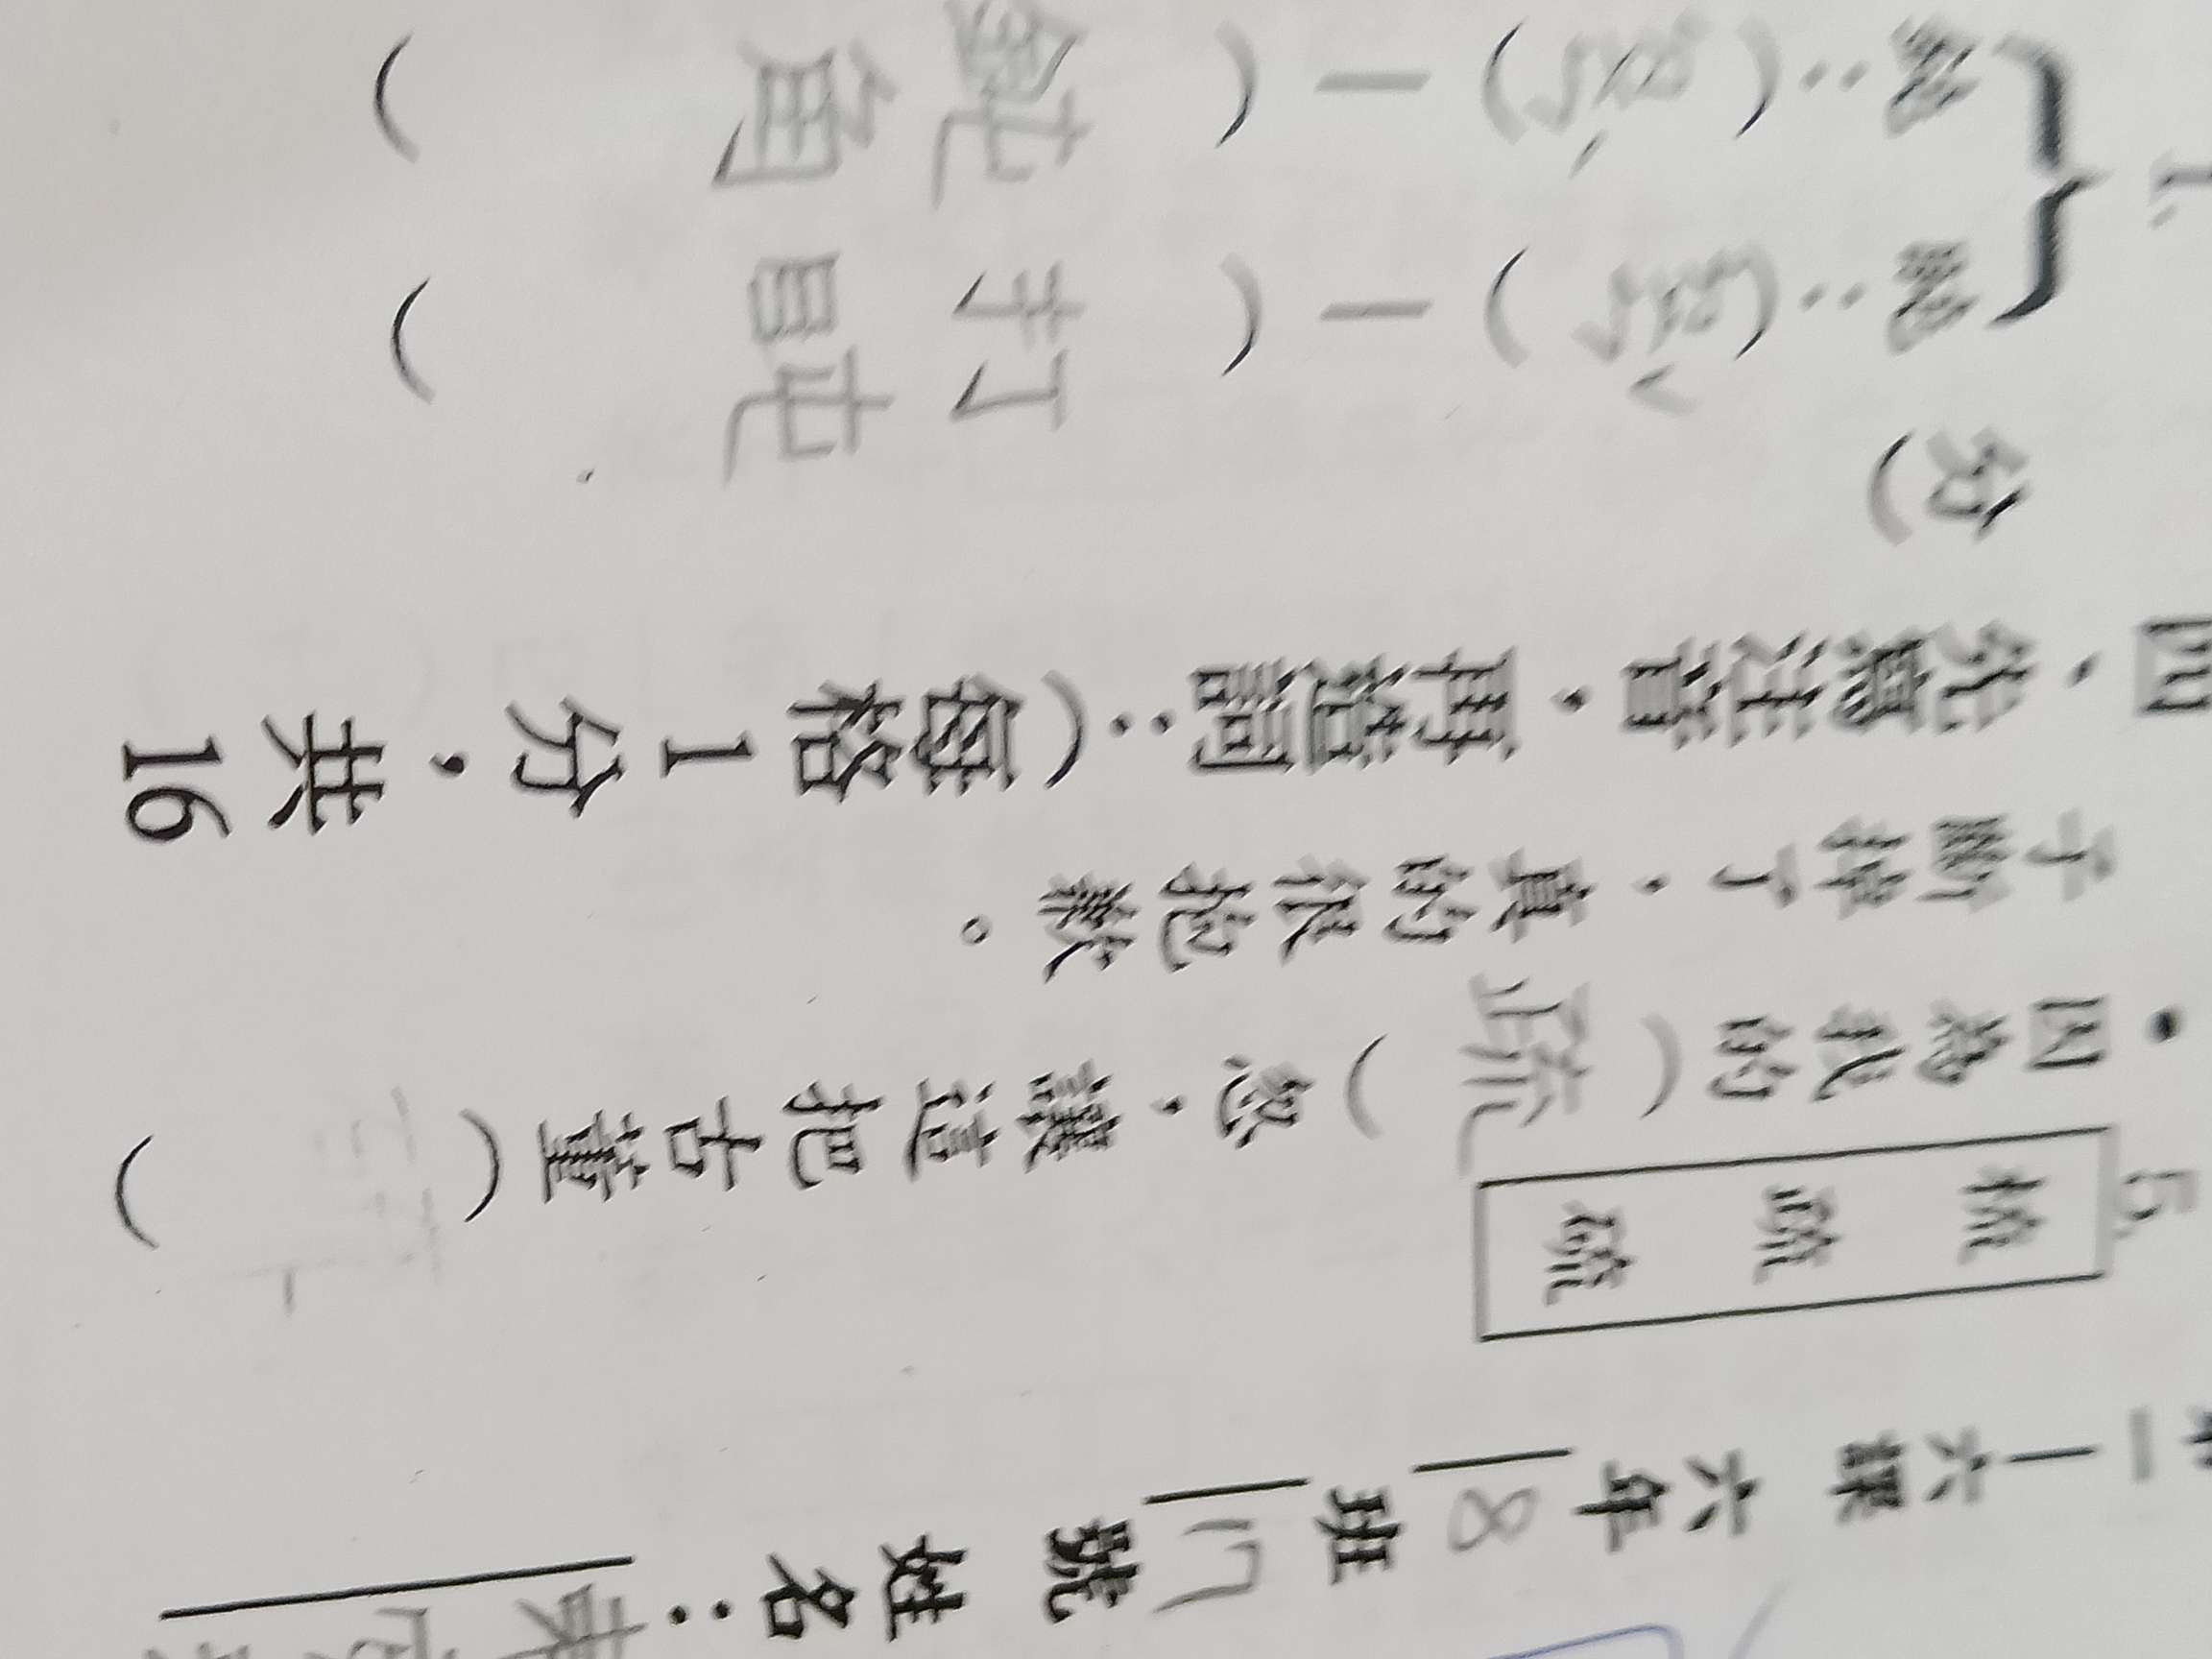 一六課 六年8班17號 姓名：
5.
梳 疏 硫
因為我的（疏）忽，讓這把古董（ ）
子斷掉了，真的很抱歉。
四、先寫注音，再造詞：（每格1分，共16
分）
1.
鈍：（ㄉㄨㄣˋ）—（鈍角）
盹：（ㄉㄨㄣˇ）—（打盹）